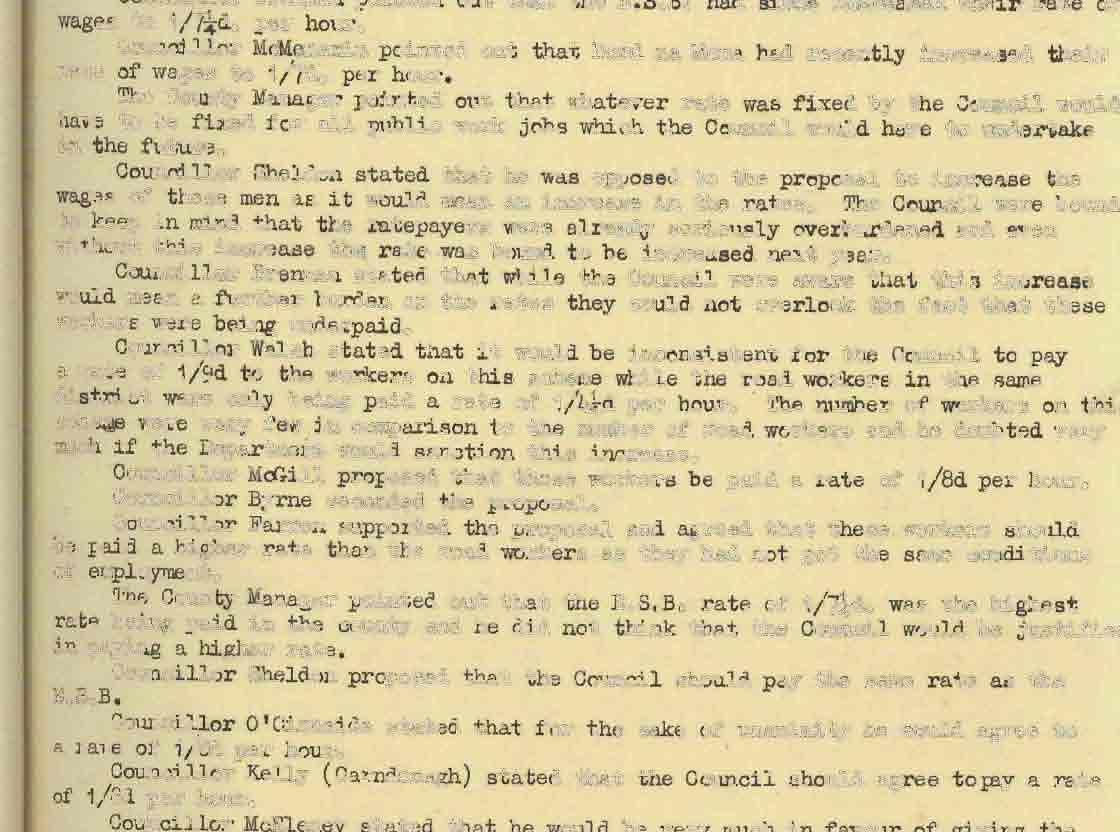 wages to 1/7¼d. per hour.
Councillor McMenamin pointed out that Bord na Mona had recently increased their
rate of wages to per hour.
The County Manager pointed out that whatever rate was fixed by the Council would
have to be fixed for all public work jobs which the Council would have to undertake
in the future.
Councillor Sheldon stated that he was opposed to the proposal to increase the
wages of these men as it would mean an increase in the rates. The Council were bound
to keep in mind that the ratepayers were already seriously overburdened and even
without this increase the rate was bound to be increased next year.
Councillor Brennan stated that while the Council were aware that this increase
would mean a further burden on the rates they could not overlook the fact that these
workers were being underpaid.
Councillor Walsh stated that it would be inconsistent for the Council to pay
a rate of 1/9d to the workers on this scheme while the road workers in the same
district were only being paid a rate of per hour. The number of workers on thi
scheme were very few in comparison to the number of road workers and he doubted very
much if the Department would sanction this increase.
Councillor McGill proposed that these workers be paid a rate of 1/8d per hour.
Councillor Byrne seconded the proposal.
Councillor Farren supported the proposal and agreed that these workers should
be paid a higher rate than the road workers as they had not got the same conditions
of employment.
The County Manager pointed out that the E.S.B. rate of was the highest
rate being paid in the county and he did not think that the Council would be justifie
in paying a higher rate.
Councillor Sheldon proposed that the Council should pay the same rate as the
E.S.B.
Councillor stated that for the sake of unanimity he would agree to
a rate of per hour.
Councillor Kelly (Carndonagh) stated that the Council should agree topay a rate
of per hour.
Councillor stated that he would be very much in favour of giving the